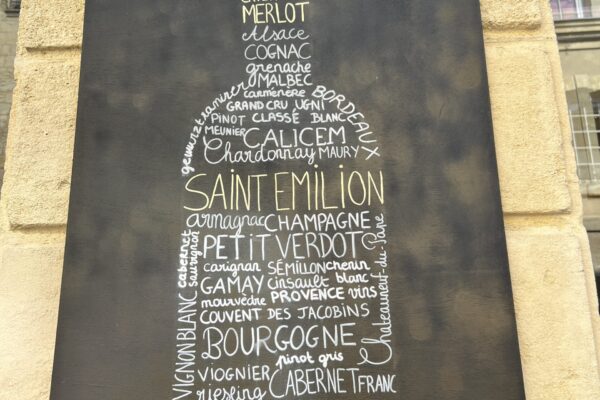 MERLOT
Alsace
COGNAC
grenache
MALBEC
carménère
gewurztraminer
BORDEAUX
GRAND CRU UGNI
PINOT CLASSÉ BLANC
MEUNIER CALICEM
Chardonnay MAURY
SAINT EMILION
armagnac CHAMPAGNE
cabernet sauvignon
PETIT VERDOT
Chateauneuf-du-Pape
carignan SÉMILLON chenin
GAMAY cinsault blanc
mourvèdre PROVENCE vins
COUVENT DES JACOBINS
VIGNON BLANC
BOURGOGNE
pinot gris
VIOGNIER CABERNET FRANC
riesling